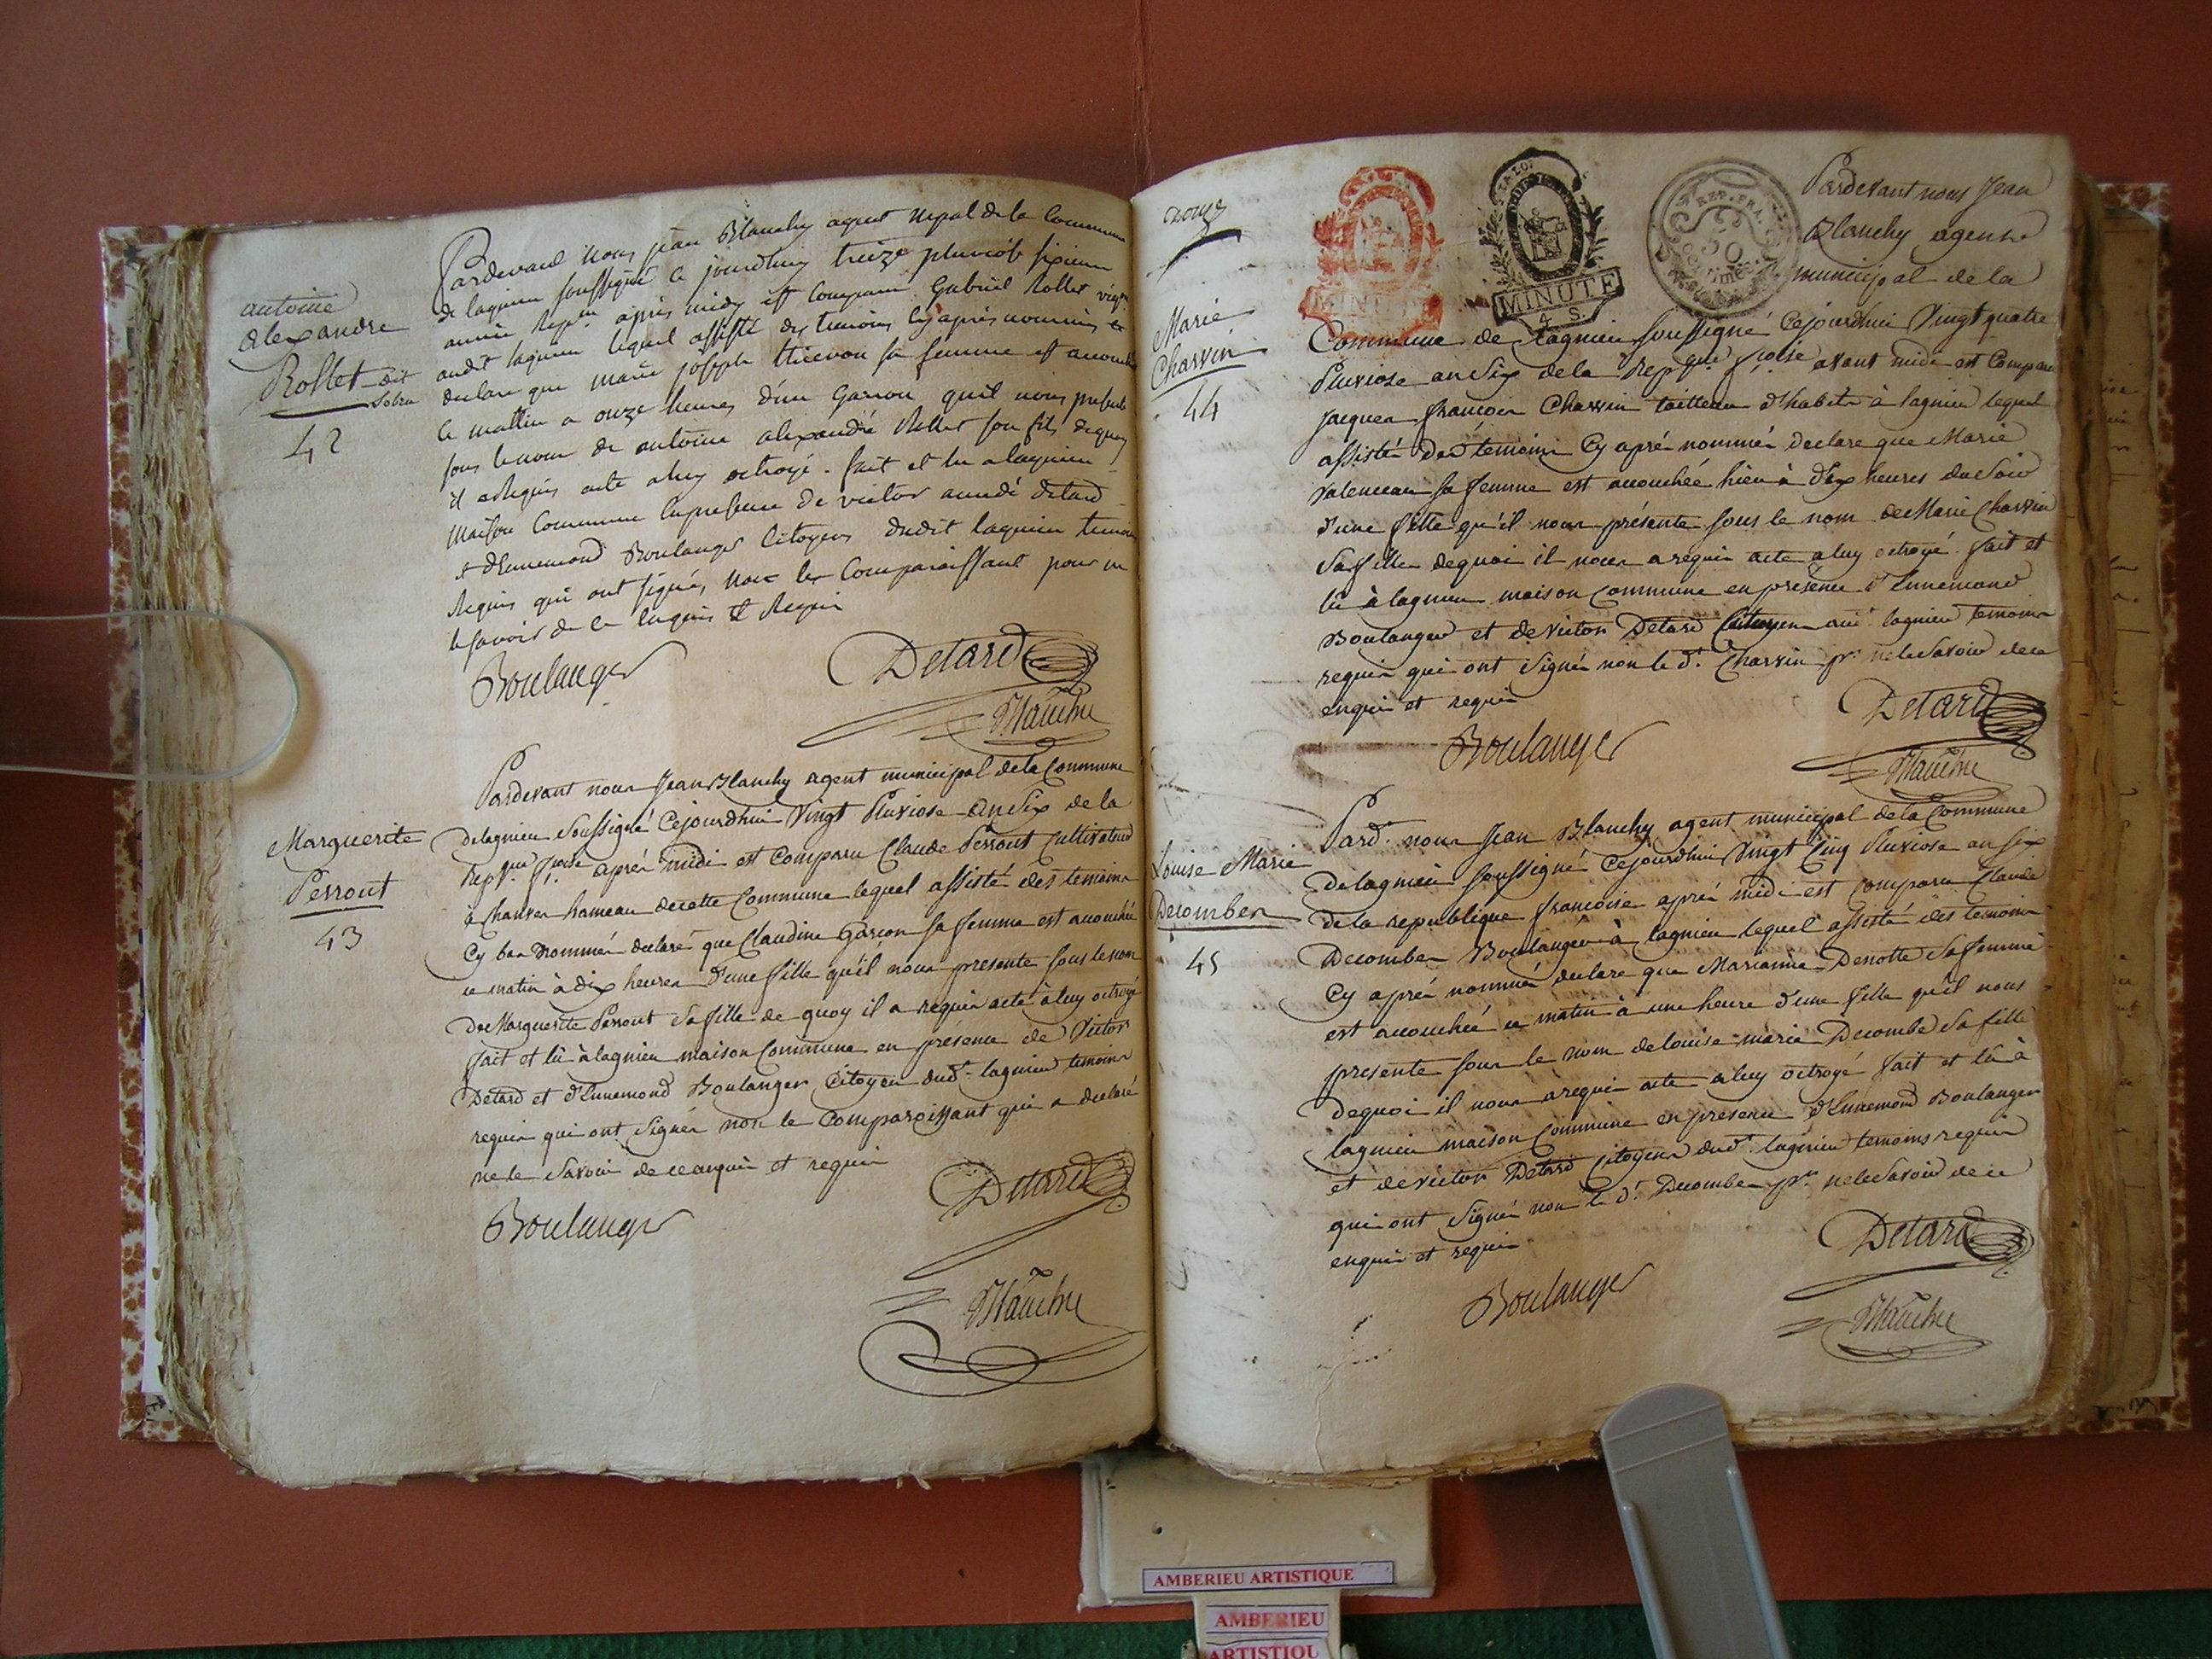 antoine
alexandre
Rollet dit
42
Pardevant nous jean Blanchy agent mpal de la Commune
de lagnieu soussigné ce jourdhuy treize pluviose sixieme
année Repne apres midy est Comparu Gabriel Rollet
audit lagnieu lequel assisté des temoins cy apres nommés
declare que marie josephe thievon sa femme est accouchée
ce mattin a onze heures d'un Garcon quil nous presente
sous le nom de antoine alexandre Rollet son fils dequoy
il a Requis acte a luy octroyé. fait et lu a lagnieu
Maison Commune En presence de victor amedé detard
& dEnnemond Boulanger Citoyens dudit lagnieu temoins
Requis qui ont signés, non le Comparaissant pour ne
le savoir de ce Enquis & Requis
Boulanger
Detard
Blanchy
Marguerite
Perrout
43
Pardevant nous Jean Blanchy agent municipal dela Commune
delagnieu Soussigné Cejourdhui Vingt Pluviose an Six de la
Repque fçoise après midi est Comparu Claude Perrout Cultivateur
à Chanves hameau decette Commune lequel assisté des temoins
Cy bas nommés declaré que Claudine Garcon sa femme est accouchée
ce matin à dix heures d'une fille qu'il nous presente sous le nom
de Marguerite Perrout Sa fille de quoy il a requis acte à luy octroyé
fait et lû à lagnieu maison Commune en présence de Victor
Detard et d'Ennemond Boulanger Citoyens dudt lagnieu temoins
requis qui ont signés non le Comparoissant qui a declaré
ne le Savoir de ce enquis et requis
Boulanger
Detard
Blanchy
Douze
MINUTE
MINUTE
4 S.
REP. FRA.
50
Centimes
Marie
Charvin
44
Pardevant nous Jean
Blanchy agent
municipal de la
Commune de Lagnieu soussigné Cejourdhui Vingt quatre
Pluviose an Six de la Repque fçoise avant midi est Comparu
Jacques françois Charvin tailleur d'habits à lagnieu lequel
assisté des temoins Cy après nommés declare que Marie
Valenceau sa femme est accouchée hier à Dix heures du Soir
d'une fille qu'il nous présente sous le nom de Marie Charvin
Sa fille dequoi il nous a requis acte a luy octroyé fait et
lû à lagnieu maison Commune en présence d'Ennemond
Boulanger et de Victor Detard Citoyens audt lagnieu temoins
requis qui ont signés non le dt Charvin pr ne le Savoir de ce
enquis et requis
Boulanger
Detard
Blanchy
Louise Marie
Decombes
45
Pardt nous Jean Blanchy agent municipal dela Commune
Delagnieu soussigné Cejourdhui Vingt Cinq Pluviose an six
de la république francoise après midi est comparu Claude
Decombes Boulanger à lagnieu lequel assisté des temoins
Cy après nommés declare que Marianne Denotte Sa femme
est accouchée ce matin à une heure d'une fille qu'il nous
presente sous le nom delouise marie Decombe Sa fille
dequoi il nous a requis acte a luy octroyé fait et lû à
lagnieu maison Commune en presence d'Ennemond Boulanger
et de victor Detard Citoyens dudt lagnieu temoins requis
qui ont signés non le dt Decombes pr ne le Savoir de ce
enquis et requis
Boulanger
Detard
Blanchy
AMBERIEU ARTISTIQUE
AMBERIEU
ARTISTIQU